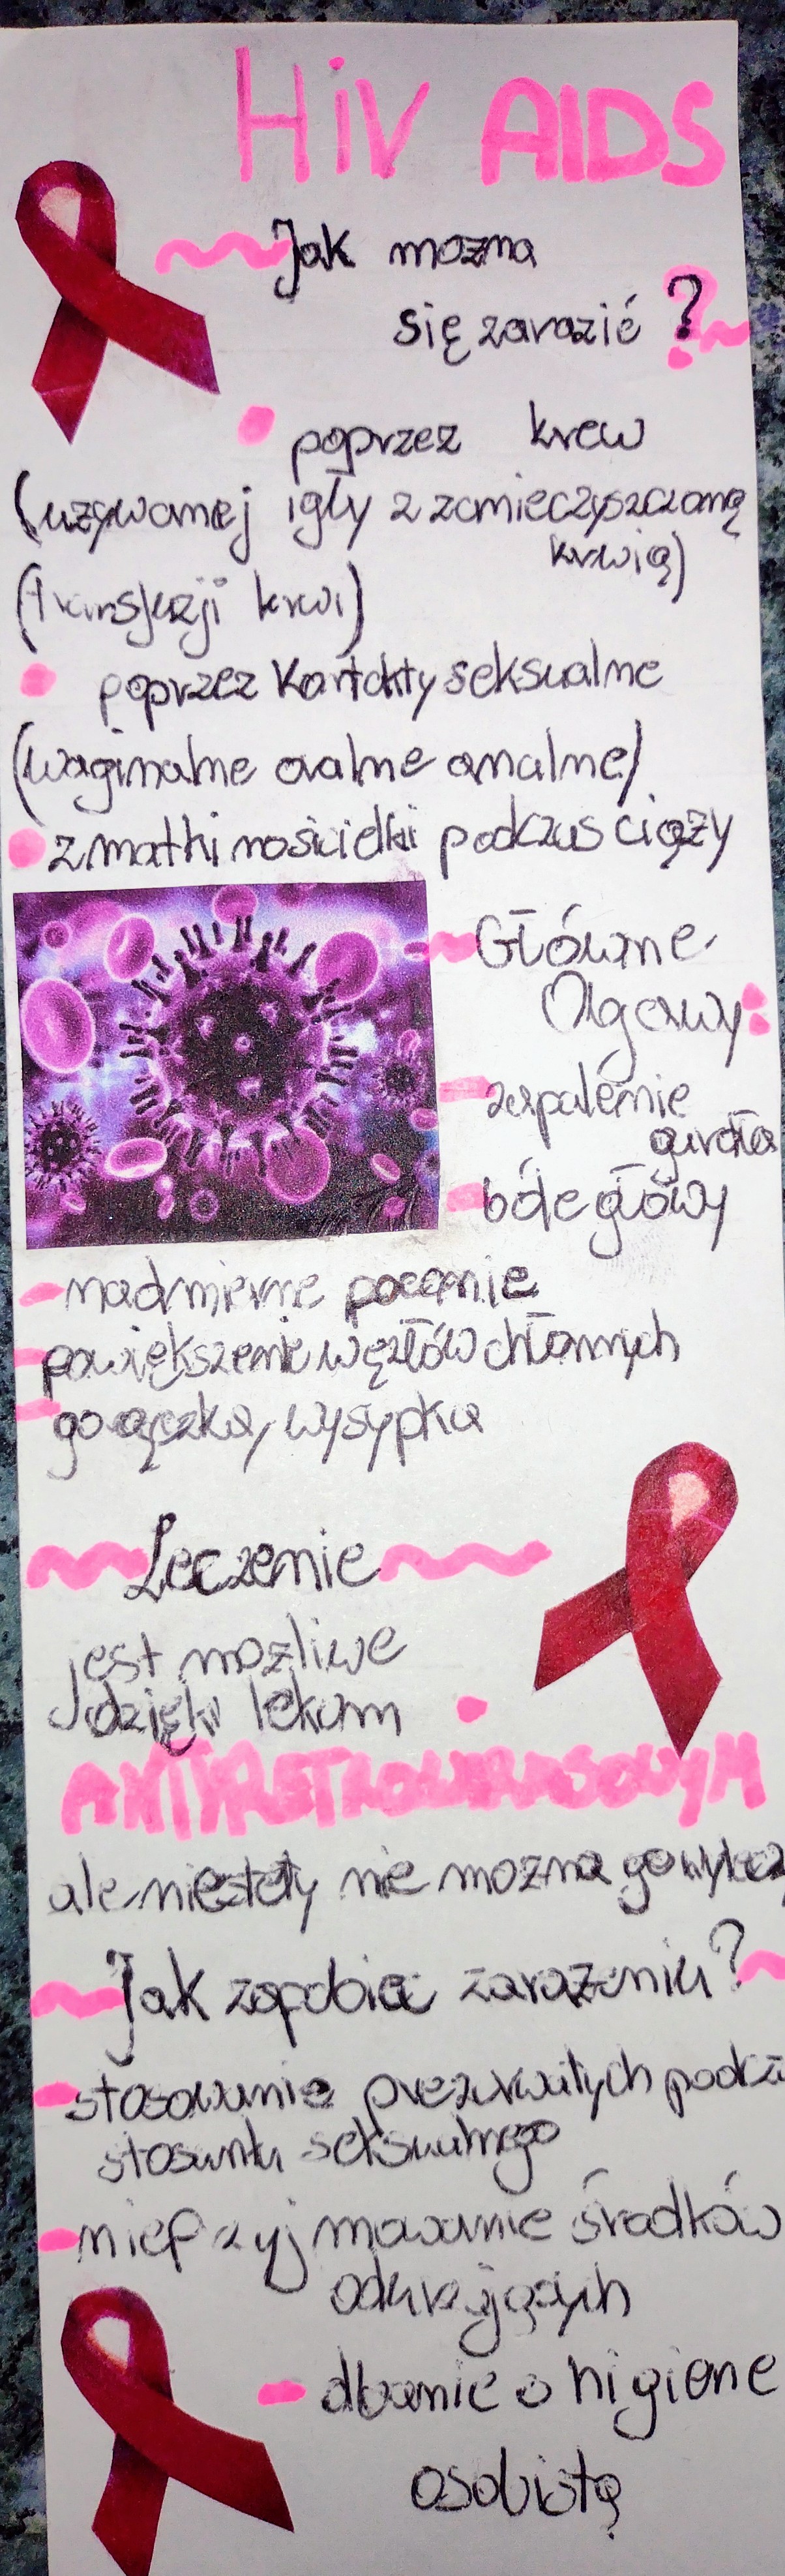 HiV AIDS
Jak mozna
się zarazić ?
poprzez krew
(uzywanej igły z zanieczyszczoną
krwią)
(transfuzji krwi)
poprzez Kontakty seksualne
(waginalne oralne analne)
z matki nosicielki podczas ciąży
Główne
Objawy:
zapalenie
gardła
bóle głowy
nadmierne pocenie
powiększenie węzłów chłonnych
gorączka, wysypka
Leczenie
jest mozliwe
dzięki lekom
ANTYRETROWIRUSOWYM
ale niestety nie mozna go
Jak zapobiec zarażeniu?
stosowanie prezerwatych
stosunku seksualnego
nieprzyjmowanie środków
odurzających
dbanie o higiene
osobistą